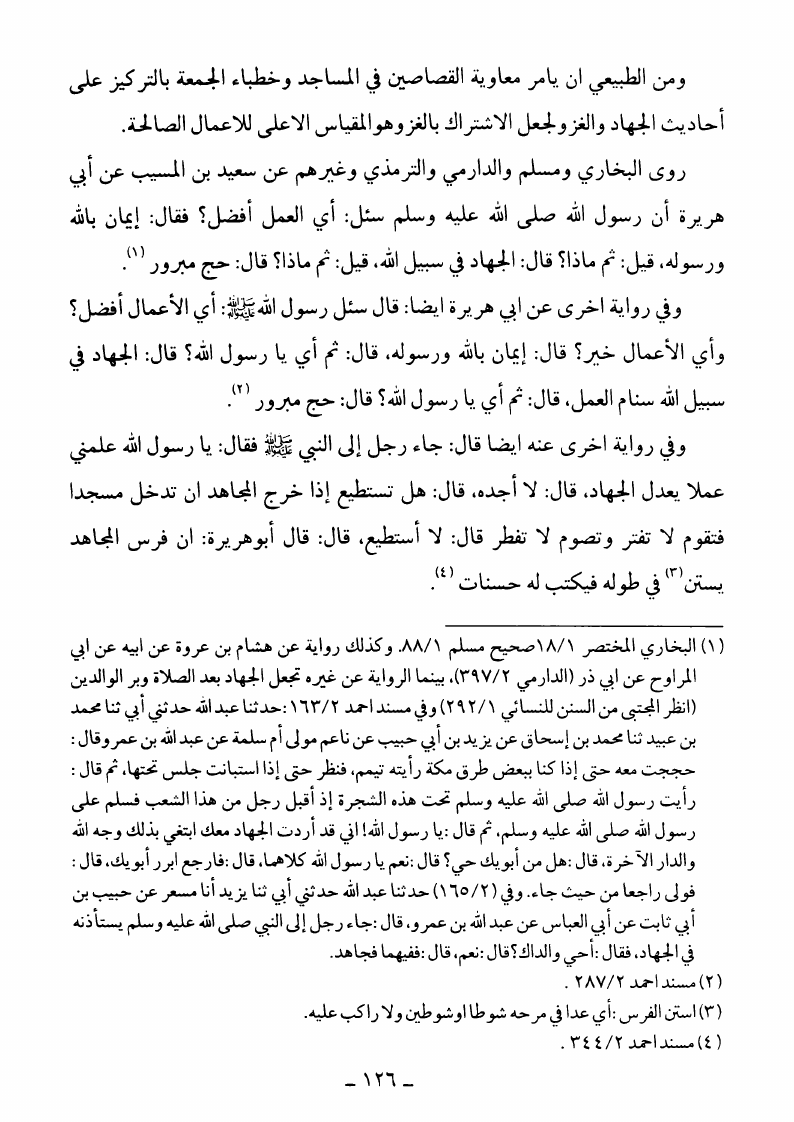 ومن الطبيعي ان يامر معاوية القصاصين في المساجد وخطباء الجمعة بالتركيز على
أحاديث الجهاد والغزو لجعل الاشتراك بالغزو هو المقياس الاعلى للاعمال الصالحة.
روى البخاري ومسلم والدارمي والترمذي وغيرهم عن سعيد بن المسيب عن أبي
هريرة أن رسول الله صلى الله عليه وسلم سئل: أي العمل أفضل؟ فقال: إيمان بالله
ورسوله، قيل: ثم ماذا؟ قال: الجهاد في سبيل الله، قيل: ثم ماذا؟ قال: حج مبرور (١).
وفي رواية اخرى عن ابي هريرة ايضا: قال سئل رسول الله ﷺ: أي الأعمال أفضل؟
وأي الأعمال خير؟ قال: إيمان بالله ورسوله، قال: ثم أي يا رسول الله؟ قال: الجهاد في
سبيل الله سنام العمل، قال: ثم أي يا رسول الله؟ قال: حج مبرور (٢).
وفي رواية اخرى عنه ايضا قال: جاء رجل إلى النبي ﷺ فقال: يا رسول الله علمني
عملا يعدل الجهاد، قال: لا أجده، قال: هل تستطيع إذا خرج المجاهد ان تدخل مسجدا
فتقوم لا تفتر وتصوم لا تفطر قال: لا أستطيع، قال: قال أبوهريرة: ان فرس المجاهد
يستن (٣) في طوله فيكتب له حسنات (٤).
(١) البخاري المختصر ١٨/١ صحيح مسلم ٨٨/١. وكذلك رواية عن هشام بن عروة عن ابيه عن ابي
المراوح عن ابي ذر (الدارمي ٣٩٧/٢)، بينما الرواية عن غيره تجعل الجهاد بعد الصلاة وبر الوالدين
(انظر المجتبى من السنن للنسائي ٢٩٢/١) وفي مسند احمد ١٦٣/٢ :حدثنا عبد الله حدثني أبي ثنا محمد
بن عبيد ثنا محمد بن إسحاق عن يزيد بن أبي حبيب عن ناعم مولى أم سلمة عن عبد الله بن عمرو قال :
حججت معه حتى إذا كنا ببعض طرق مكة رأيته تيمم، فنظر حتى إذا استبانت جلس تحتها، ثم قال :
رأيت رسول الله صلى الله عليه وسلم تحت هذه الشجرة إذ أقبل رجل من هذا الشعب فسلم على
رسول الله صلى الله عليه وسلم، ثم قال :يا رسول الله! اني قد أردت الجهاد معك ابتغي بذلك وجه الله
والدار الآخرة، قال :هل من أبويك حي؟ قال :نعم يا رسول الله كلاهما، قال :فارجع ابرر أبويك، قال :
فولى راجعا من حيث جاء. وفي (١٦٥/٢) حدثنا عبد الله حدثني أبي ثنا يزيد أنا مسعر عن حبيب بن
أبي ثابت عن أبي العباس عن عبد الله بن عمرو، قال :جاء رجل إلى النبي صلى الله عليه وسلم يستأذنه
في الجهاد، فقال :أحي والداك؟ قال :نعم، قال :ففيهما فجاهد.
(٢) مسند احمد ٢٨٧/٢ .
(٣) استن الفرس :أي عدا في مرحه شوطا او شوطين ولا راكب عليه.
(٤) مسند احمد ٣٤٤/٢ .
– ١٢٦ –